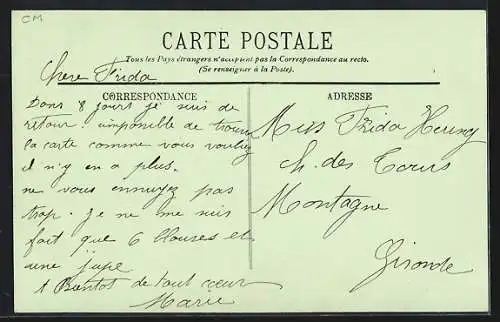 CM
CARTE POSTALE
Tous les Pays étrangers n'acceptent pas la Correspondance au recto.
(Se renseigner à la Poste).
Chere Frida
CORRESPONDANCE
Dans 8 jours je suis de
retour. imposible de trouver
la carte comme vous vouliez
il n'y en a plus.
ne vous ennuyez pas
trop. je ne me suis
fait que 6 blouses et
une jupe
A Bientot de tout cœur
Marie
ADRESSE
Miss Frida
ch. des Tours
Montagne
Gironde